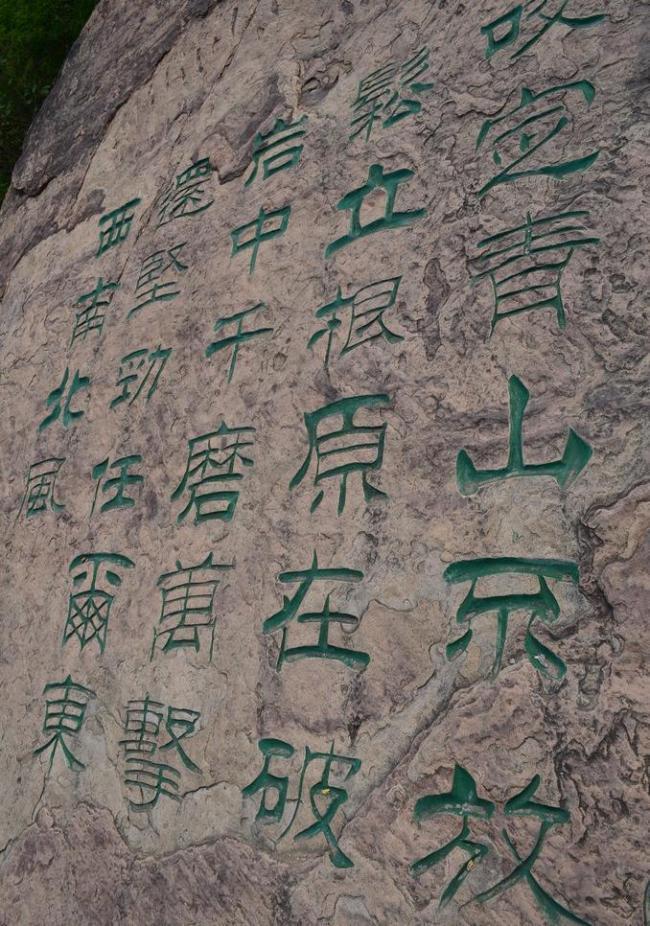 咬定青山不放
鬆立根原在破
岩中千磨萬擊
還堅勁任爾東
西南北風